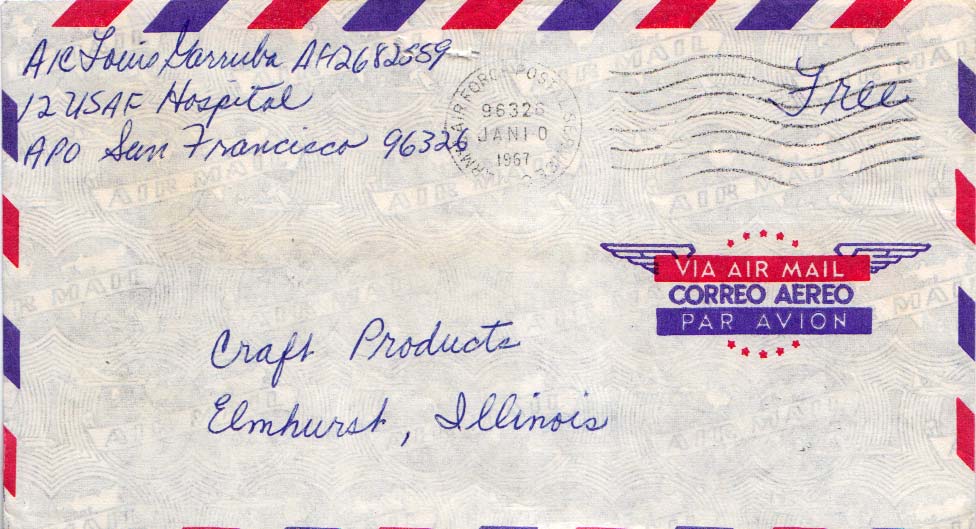 A1C Louis Garruba AF12682559
12 USAF Hospital
APO San Francisco 96326
ARMY AIR FORCE POSTAL SERVICE
96326
JAN 10
1967
Free
VIA AIR MAIL
CORREO AEREO
PAR AVION
Craft Products
Elmhurst, Illinois
AIR MAIL